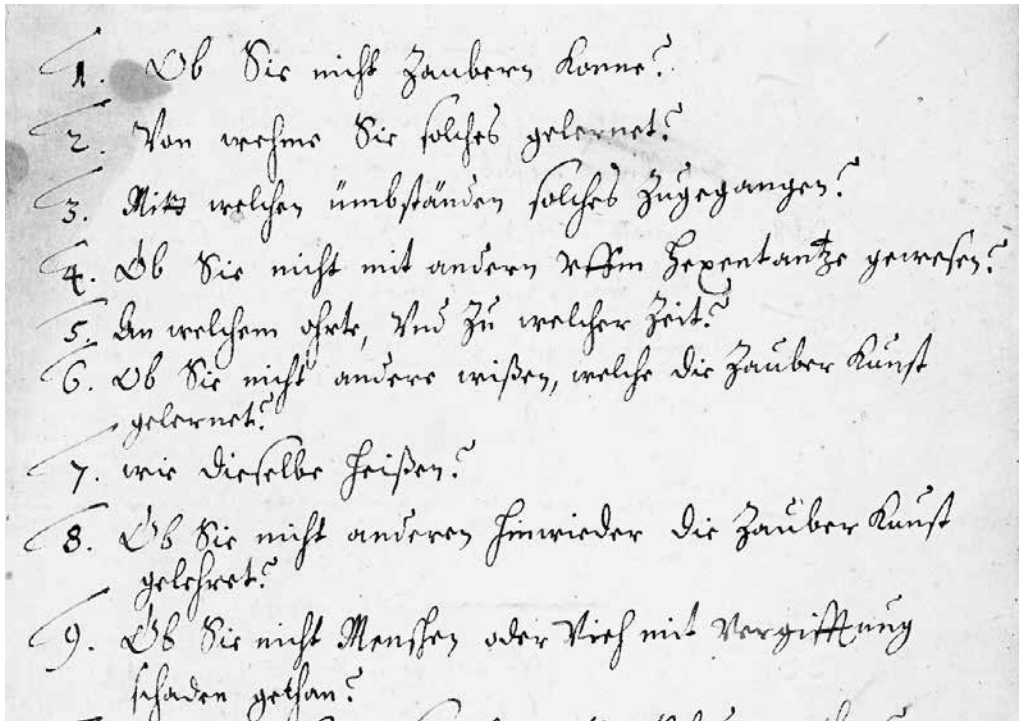 1. Ob Sie nicht Zaubern Konne?
2. Von wehme Sie solches gelernet?
3. Mitt welchen ümbständen solches Zugegangen?
4. Ob Sie nicht mit andern vffm Hexentantze gewesen?
5. An welchem ohrte, Vnd Zu welcher Zeit?
6. Ob Sie nicht andere wißen, welche die Zauber Kunst
gelernet?
7. wie dieselbe heißen?
8. Ob Sie nicht anderen hinwieder die Zauber Kunst
gelehret?
9. Ob Sie nicht Menschen oder Vieh mit Vergifftung
schaden gethan?